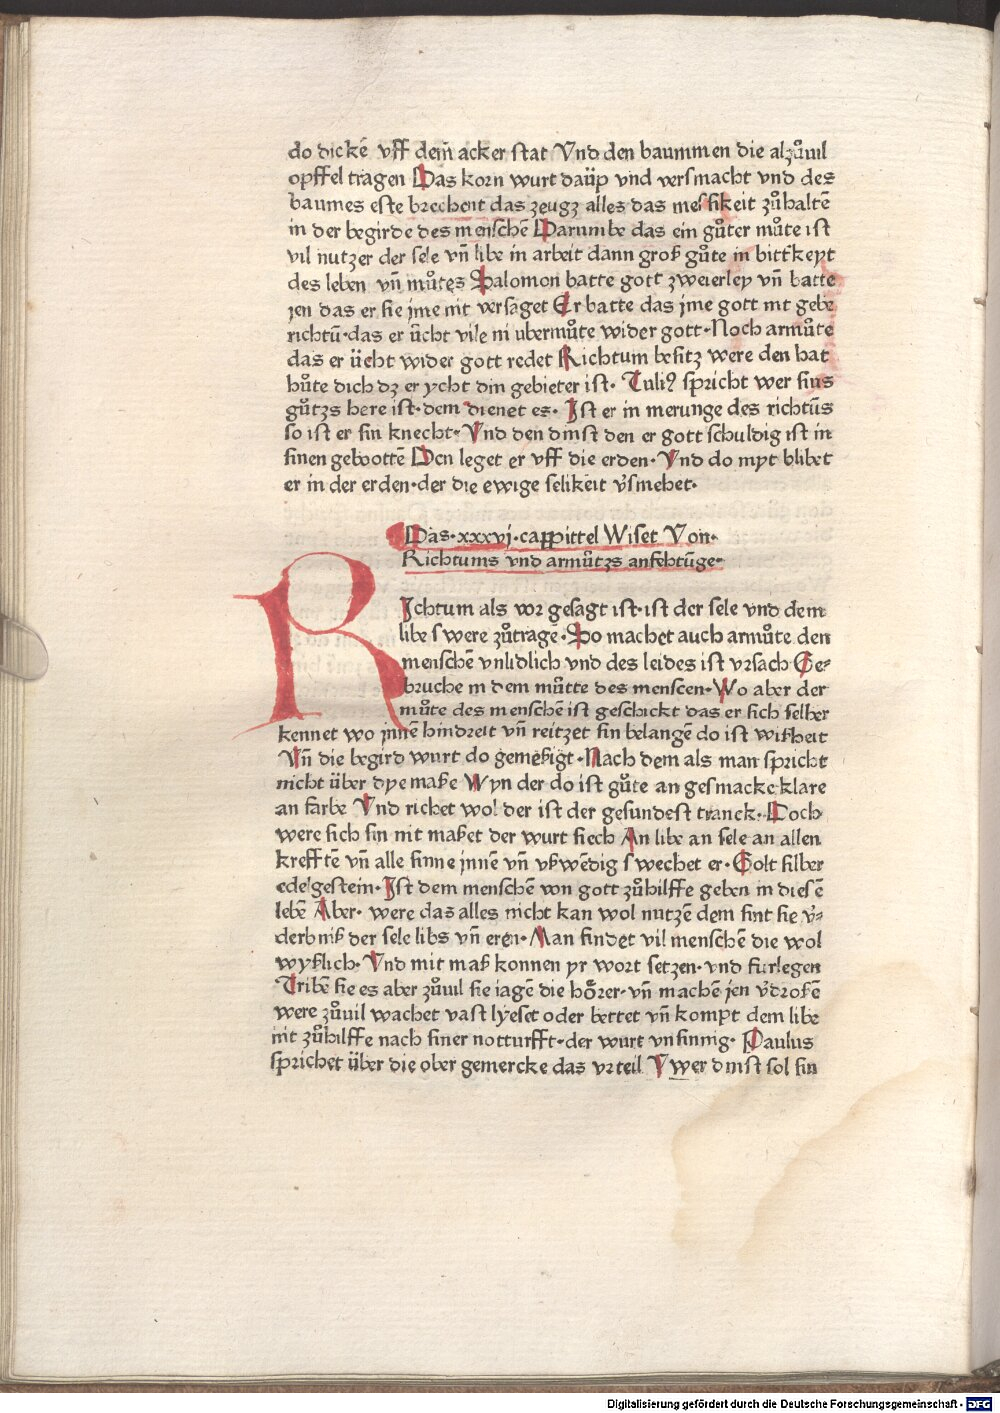 do dickē vff dem̄ acker stat Vnd den baummen die alzůuil
opffel tragen Das korn wurt daüp vnd versmacht vnd des
baumes este brechent das zeugz alles das messikeit zůhaltē
in der begirde des menschē Darumbe das ein gůter můte ist
vil nutzer der sele vn̄ libe in arbeit dann groß gůte in bittkeyt
des leben vn̄ můtes Salomon batte gott zweierley vn̄ batte
jen das er sie jme nit versaget Er batte das jme gott nit gebe
richtū·das er ücht vile in ubermůte wider gott·Noch armůte
das er ücht wider gott redet Richtum besitz were den hat
hůte dich dz er ycht din gebieter ist· Tuliꝰ spricht wer sins
gůtzs here ist·dem dienet es· Ist er in merunge des richtūs
so ist er sin knecht·Vnd den dinst den er gott schuldig ist in
sinen gebottē Den leget er vff die erden·Vnd do myt blibet
er in der erden·der die ewige selikeit v̄smehet·
Das·xxxvj·cappittel Wiset Von·
Richtums vnd armůtzs anfehtūge·
RIchtum als vor gesagt ist·ist der sele vnd dem
libe swere zůtragē·So machet auch armůte den
menschē vnlidlich vnd des leides ist vrsach Ge⸗
bruche in dem můtte des menscen·Wo aber der
můte des menschē ist geschickt das er sich selber
kennet wo jnnē hindreit vn̄ reitzet sin belangē do ist wißheit
Vn̄ die begird wurt do gemeßigt·Nach dem als man spricht
nicht über dye maße Wyn der do ist gůte an gesmacke klare
an farbe Vnd richet wol der ist der gesundest tranck·Doch
were sich sin nit maßet der wurt siech An libe an sele an allen
krefftē vn̄ alle sinne jnnē vn̄ vßwēdig swechet er·Golt silber
edelgestein·Ist dem menschē von gott zůhilffe geben in diesē
lebē Aber· were das alles nicht kan wol nutzē dem sint sie v̄⸗
derbniß der sele libs vn̄ eren·Man findet vil menschē die wol
wyßlich·Vnd mit maß konnen yr wort setzen·vnd furlegen
Tribē sie es aber zůuil sie iagē die hörer·vn̄ machē jen v̄droßē
were zůuil wachet vast lyeset oder bettet vn̄ kompt dem libe
nit zůhilffe nach siner notturfft·der wurt vnsinnig· Paulus
sprichet über die ober gemercke das vrteil Vwer dinst sol sin
Digitalisierung gefördert durch die Deutsche Forschungsgemeinschaft - DFG